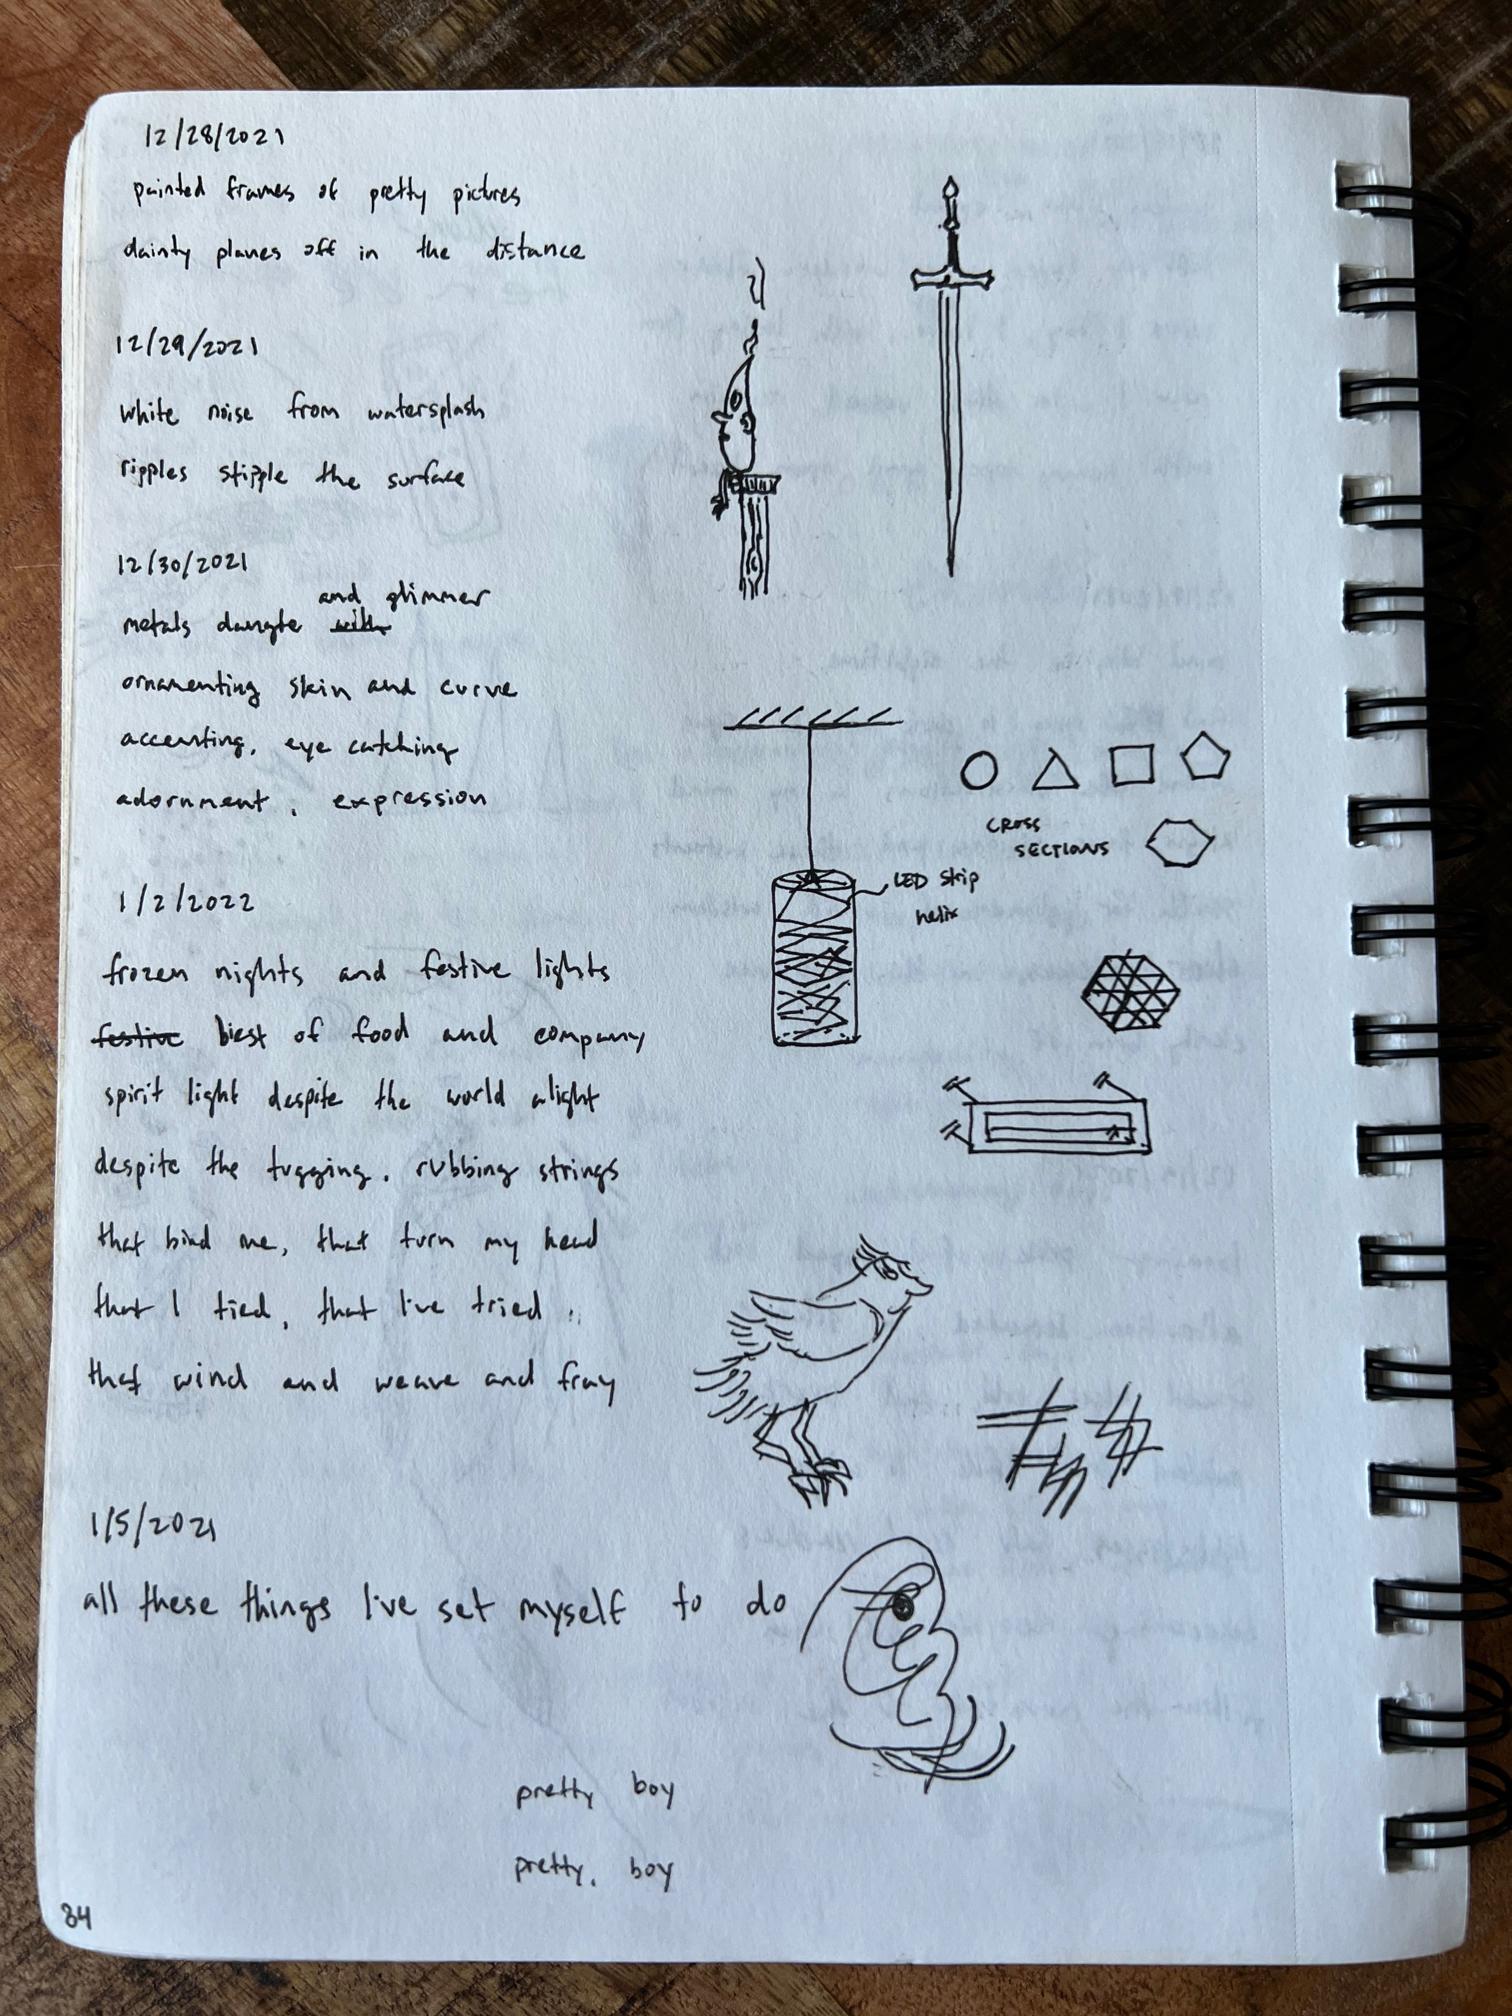 12/28/2021
painted frames of pretty pictures
dainty planes off in the distance
12/29/2021
white noise from watersplash
ripples stipple the surface
12/30/2021
and glimmer
metals dangle with
ornamenting skin and curve
accenting, eye catching
adornment, expression
CROSS
SECTIONS
LED strip
helix
1/2/2022
frozen nights and festive lights
festive biest of food and company
spirit light despite the world alight
despite the tugging, rubbing strings
that bind me, that turn my head
that I tied, that I've tried
that wind and weave and fray
1/5/2021
all these things I've set myself to do
pretty boy
pretty, boy
34